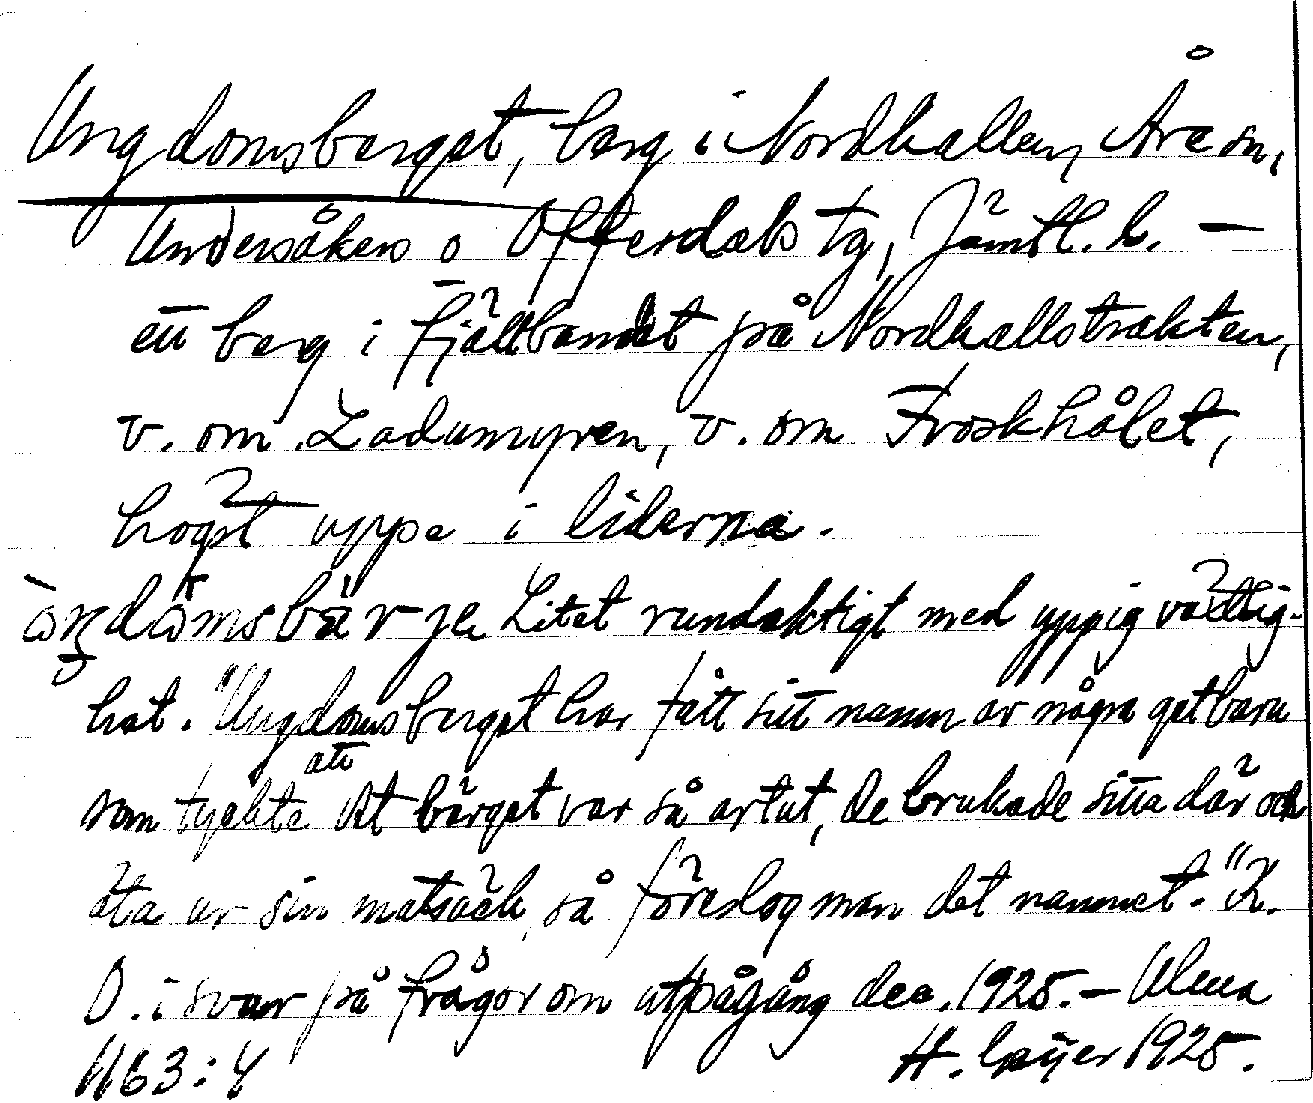 Ungdomsberget, berg i Nordhallen, Åre sn,
Undersåkers o Offerdals tg, Jämtl. l. —
ett berg i fjällbandet på Nordhallstrakten,
v. om Ladumyren, v. om Froskhålet,
högst uppe i liderna.
Litet rundaktigt med yppig växtlig-
het. "Ungdomsberget har fått sitt namn av några getbarn
att
som tyckte att bärget var så artut, de brukade sitta där och
äta ur sin matsäck, så föreslog man det namnet." K.
O. i svar på frågor om utpågång dec. 1925. — Ulma
H. Geijer 1925.
1163:4